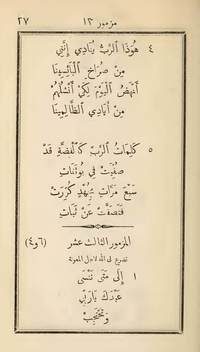 ٢٧ مزمور ١٣
٤ هُوَذَا ٱلرَّبُّ يُنَادِي إِنَّنِي
مِنْ صُرَاخِ ٱلْبَائِسِينَا
أَنْهَضُ ٱلْيَوْمَ لِكَيْ أَنْشُلَهُمْ
مِنْ أَيَادِي ٱلظَّالِمِينَا
٥ كَلِمَاتُ ٱلرَّبِّ كَٱلْفِضَّةِ قَدْ
صُفِّيَتْ فِي بُوتَقَاتِ
سَبْعَ مَرَّاتٍ بِجُهْدٍ كُرِّرَتْ
عَنْ ثَبَاتِ
المزمور الثالث عشر (٦و٤)
تضرع الى الله لاجل المعونة
١ إِلَى مَتَى تَنْسَى
عَبْدَكَ يَارَبِّي
وَتَحْتَجِبْ